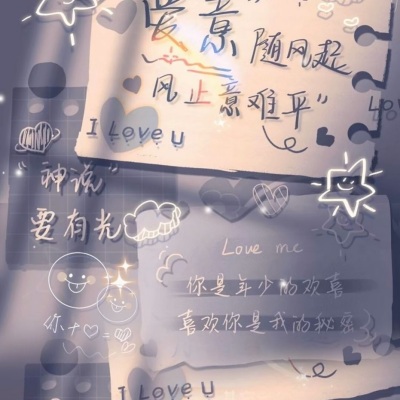 爱意
随风起
风止意难平”
I Love u
Lov
“神说”
要有光
Love me
你是年少的欢喜
喜欢你是我的秘密
你+♡=
I Love u